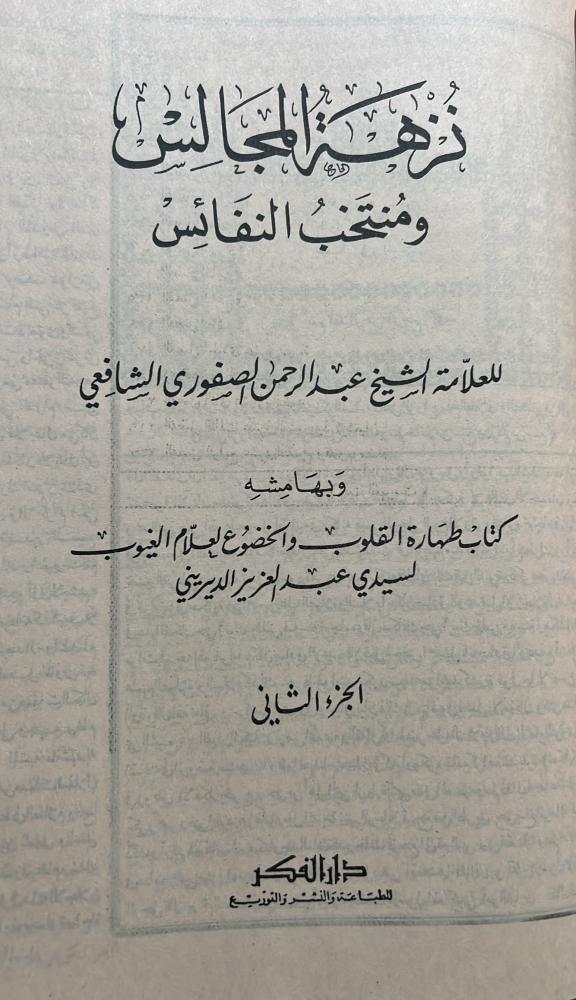 نُزْهَةُ المَجَالِسْ
ومُنتَخَبُ النفَائِسْ
للعلاّمة الشيخ عبد الرحمن الصفوري الشافعي
وَبهَامِشِهِ
كتاب طهارة القلوب والخضوع لعلاّم الغيوب
لسيدي عبد العزيز الديريني
الجزء الثاني
دار الفكر
للطباعة والنشر والتوزيع